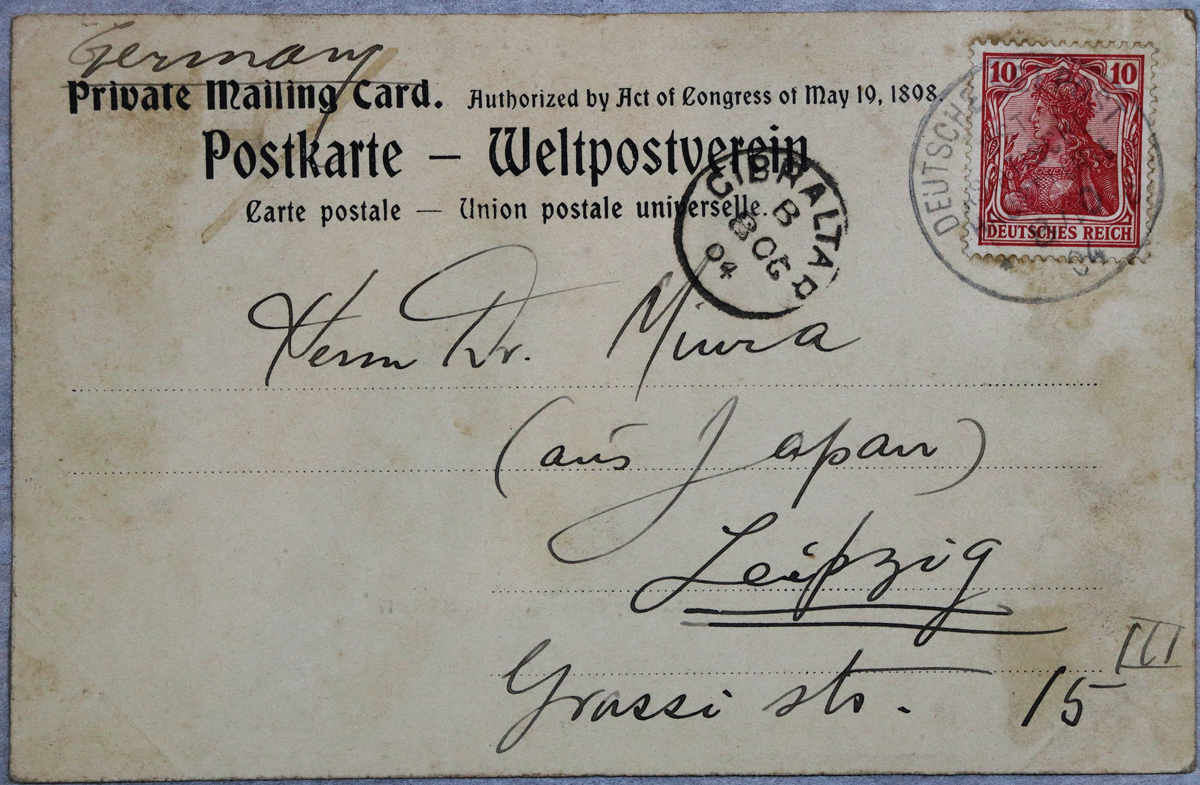 Germany
Private Mailing Card. Authorized by Act of Congress of May 19, 1898.
Postkarte – Weltpostverein
Carte postale – Union postale universelle.
10 10
DEUTSCHES REICH
DEUTSCHE
04
GIBRALTAR
B
8 OC
04
Herrn Dr. Miura
(aus Japan)
Leipzig
Grassi str. 15 III